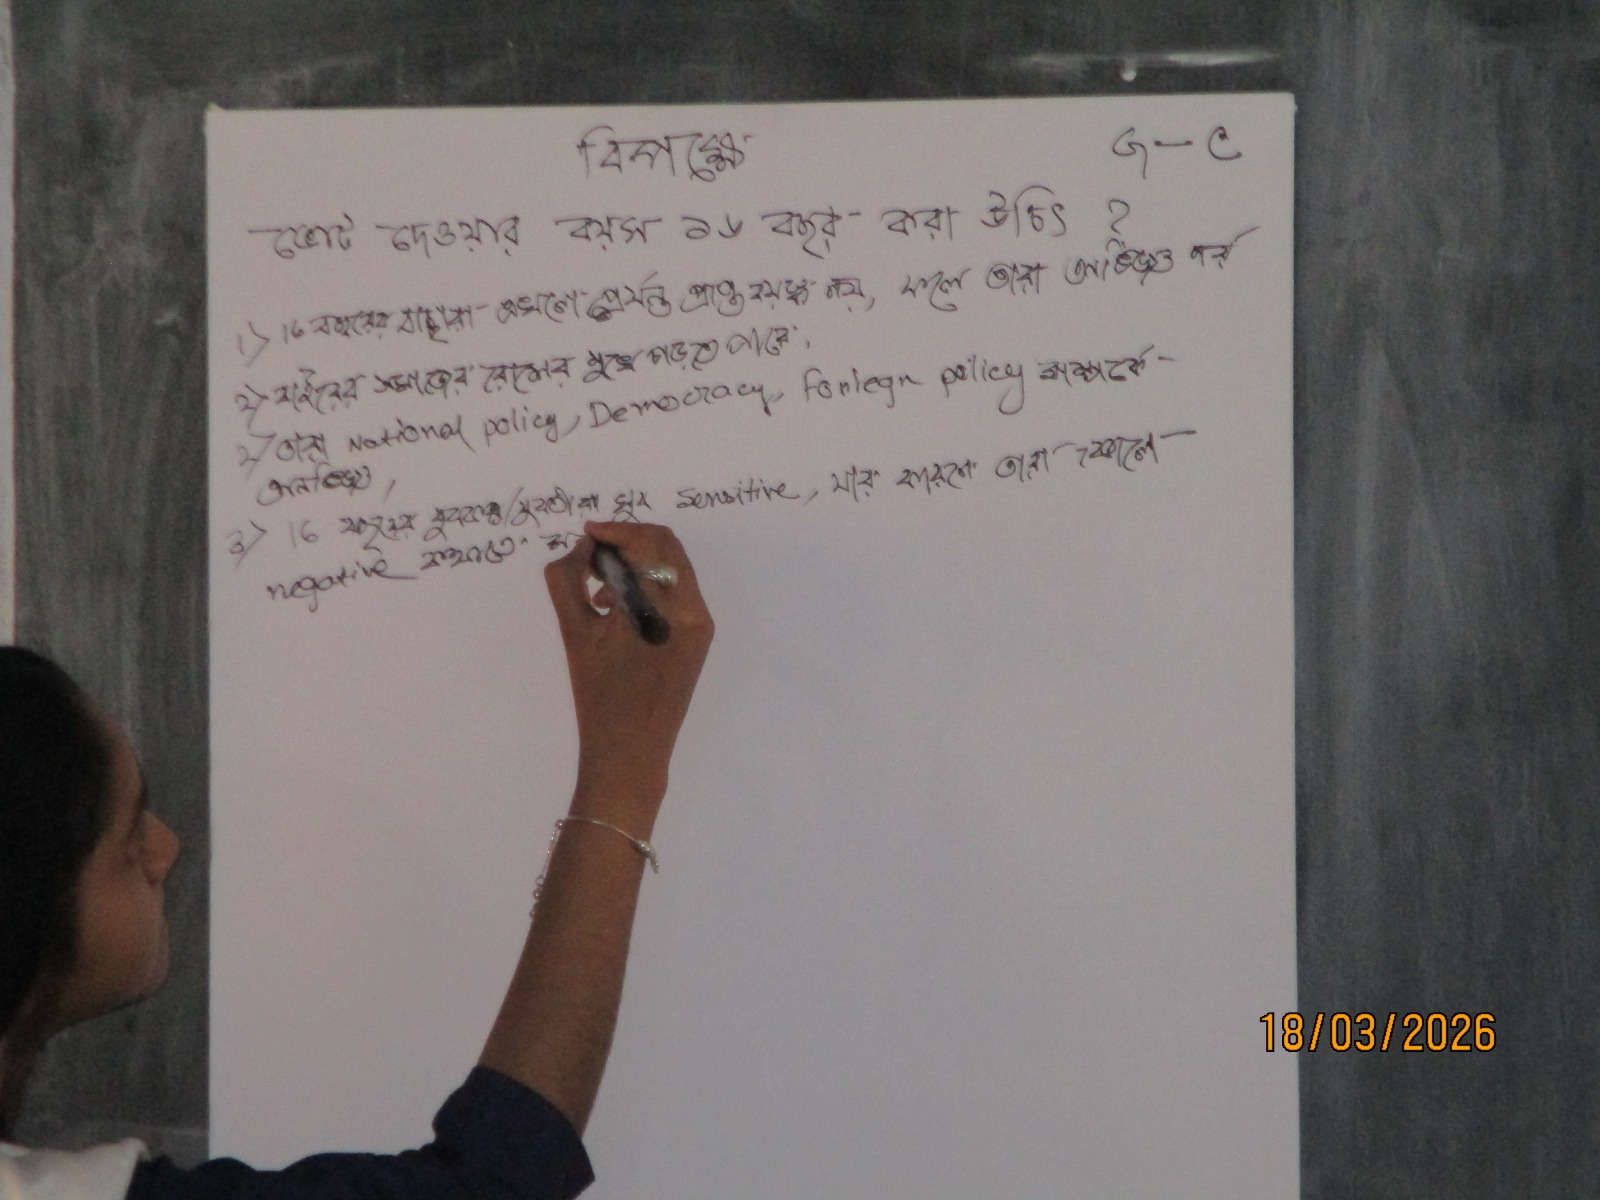 বিপক্ষে
জ - ৫
ভোট দেওয়ার বয়স ১৬ বছর করা উচিৎ ?
1) 16 বছরের বাচ্চারা এখনো পর্যন্ত প্রাপ্ত বয়স্ক নয়, ফলে তারা অভিজ্ঞও নয়
২) বাইরের সমাজের রোষের মুখে পড়তে পারে।
২) তারা National policy, Democracy, Foriegn policy সম্পর্কে
অনভিজ্ঞ,
3) 16 বছরের যুবক/যুবতীরা খুব sensitive, যার কারনে তারা কোনো
negative কথাতে
18/03/2026